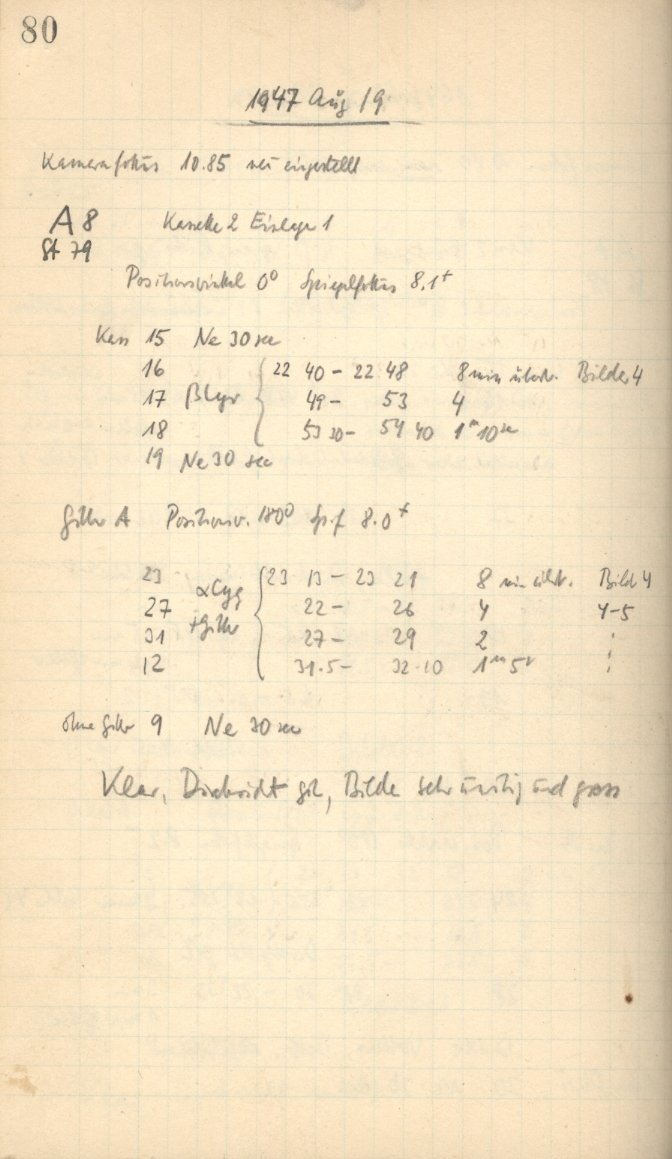 80
1947 Aug 19
Kamerafokus 10.85 neu eingestellt
A 8 Kassette 2 Einlage 1
St 79
Positionswinkel 0° Spiegelfokus 8.1+
Kass 15 Ne 30 sec
16 22 40 - 22 48 8 min Bilder 4
17 βLyr 49 - 53 4
18 53 30 - 54 40 1m 10sec
19 Ne 30 sec
Gitter A Positionsw. 180° Sp.f 8.0+
23 αCyg 23 13 - 23 21 8 min Bild 4
27 +Gitter 22 - 26 4 4-5
31 27 - 29 2 "
12 31.5 - 32.10 1m 5s "
ohne Gitter 9 Ne 30 sec
Klar, Durchsicht gut, Bilder sehr unruhig und gross